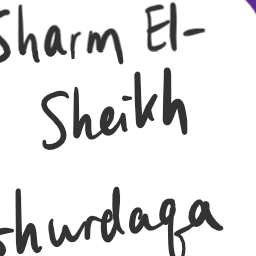 Sharm El-
Sheikh
hurdaqa